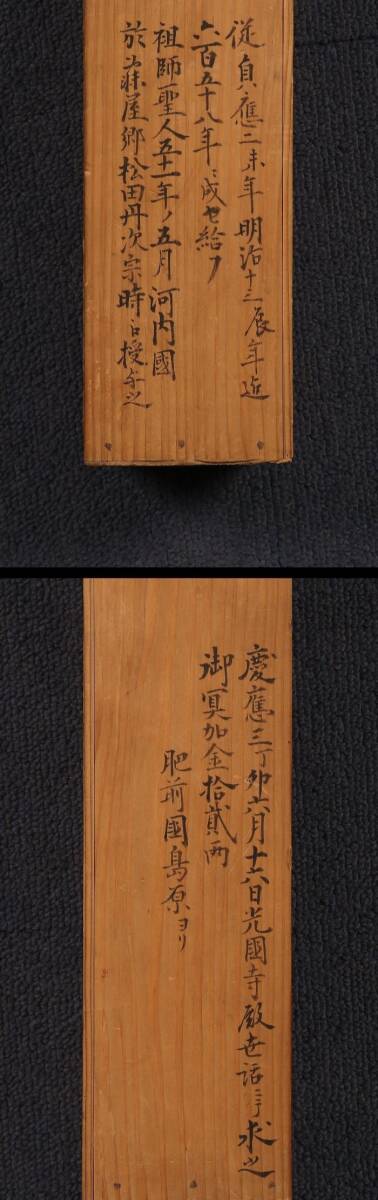 從貞應二未年明治十三辰年迄
六百五十八年ニ成セ給フ
祖師聖人五十一年ノ五月河内國
於茄屋郷松田丹次宗時ニ授与之
慶應三丁卯六月十六日光國寺殿世話ニテ求之
御冥加金拾貳両
肥前國島原ヨリ